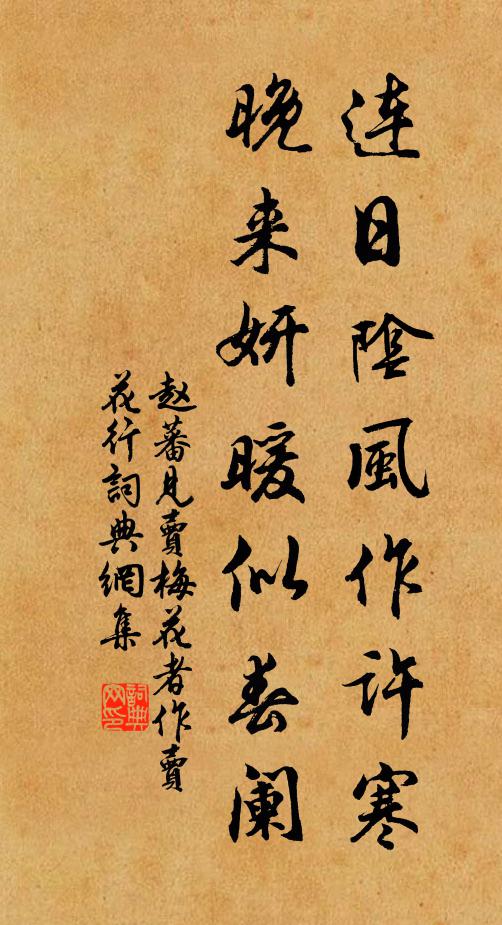 連日陰風作許寒
晚来妍暖似春阑
赵蕃見賣梅花者作賣
花行詞典網集
詞典
网印